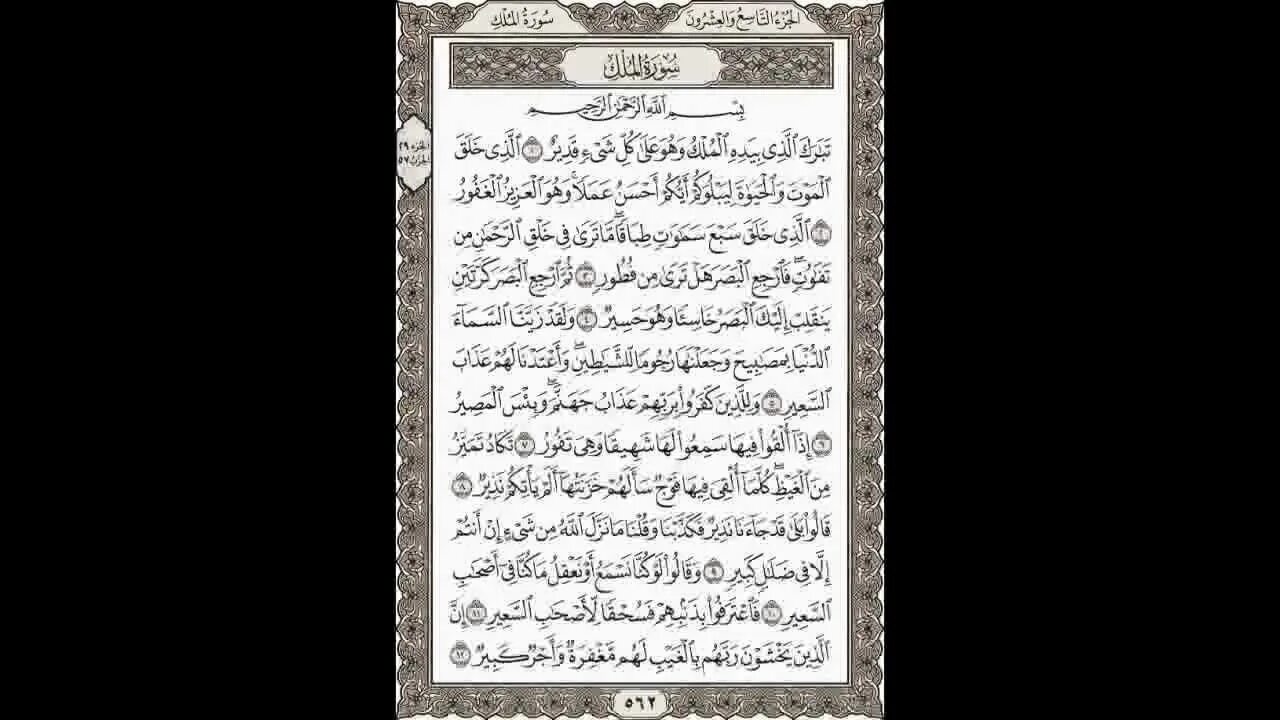 الجزء التاسع والعشرون
سورة الملك
سورة الملك
الجزء ٢٩
الحزب ٥٧
بِسْمِ ٱللَّهِ ٱلرَّحْمَٰنِ ٱلرَّحِيمِ
تَبَٰرَكَ ٱلَّذِى بِيَدِهِ ٱلْمُلْكُ وَهُوَ عَلَىٰ كُلِّ شَىْءٍ قَدِيرٌ ١ ٱلَّذِى خَلَقَ
ٱلْمَوْتَ وَٱلْحَيَوٰةَ لِيَبْلُوَكُمْ أَيُّكُمْ أَحْسَنُ عَمَلًا ۚ وَهُوَ ٱلْعَزِيزُ ٱلْغَفُورُ
٢ ٱلَّذِى خَلَقَ سَبْعَ سَمَٰوَٰتٍ طِبَاقًا ۖ مَّا تَرَىٰ فِى خَلْقِ ٱلرَّحْمَٰنِ مِن
تَفَٰوُتٍ ۖ فَٱرْجِعِ ٱلْبَصَرَ هَلْ تَرَىٰ مِن فُطُورٍ ٣ ثُمَّ ٱرْجِعِ ٱلْبَصَرَ كَرَّتَيْنِ
يَنقَلِبْ إِلَيْكَ ٱلْبَصَرُ خَاسِئًا وَهُوَ حَسِيرٌ ٤ وَلَقَدْ زَيَّنَّا ٱلسَّمَآءَ
ٱلدُّنْيَا بِمَصَٰبِيحَ وَجَعَلْنَٰهَا رُجُومًا لِّلشَّيَٰطِينِ ۖ وَأَعْتَدْنَا لَهُمْ عَذَابَ
ٱلسَّعِيرِ ٥ وَلِلَّذِينَ كَفَرُوا۟ بِرَبِّهِمْ عَذَابُ جَهَنَّمَ ۖ وَبِئْسَ ٱلْمَصِيرُ
٦ إِذَآ أُلْقُوا۟ فِيهَا سَمِعُوا۟ لَهَا شَهِيقًا وَهِىَ تَفُورُ ٧ تَكَادُ تَمَيَّزُ
مِنَ ٱلْغَيْظِ ۖ كُلَّمَآ أُلْقِىَ فِيهَا فَوْجٌ سَأَلَهُمْ خَزَنَتُهَآ أَلَمْ يَأْتِكُمْ نَذِيرٌ ٨
قَالُوا۟ بَلَىٰ قَدْ جَآءَنَا نَذِيرٌ فَكَذَّبْنَا وَقُلْنَا مَا نَزَّلَ ٱللَّهُ مِن شَىْءٍ إِنْ أَنتُمْ
إِلَّا فِى ضَلَٰلٍ كَبِيرٍ ٩ وَقَالُوا۟ لَوْ كُنَّا نَسْمَعُ أَوْ نَعْقِلُ مَا كُنَّا فِىٓ أَصْحَٰبِ
ٱلسَّعِيرِ ١٠ فَٱعْتَرَفُوا۟ بِذَنۢبِهِمْ فَسُحْقًا لِّأَصْحَٰبِ ٱلسَّعِيرِ ١١ إِنَّ
ٱلَّذِينَ يَخْشَوْنَ رَبَّهُم بِٱلْغَيْبِ لَهُم مَّغْفِرَةٌ وَأَجْرٌ كَبِيرٌ ١٢
٥٦٢